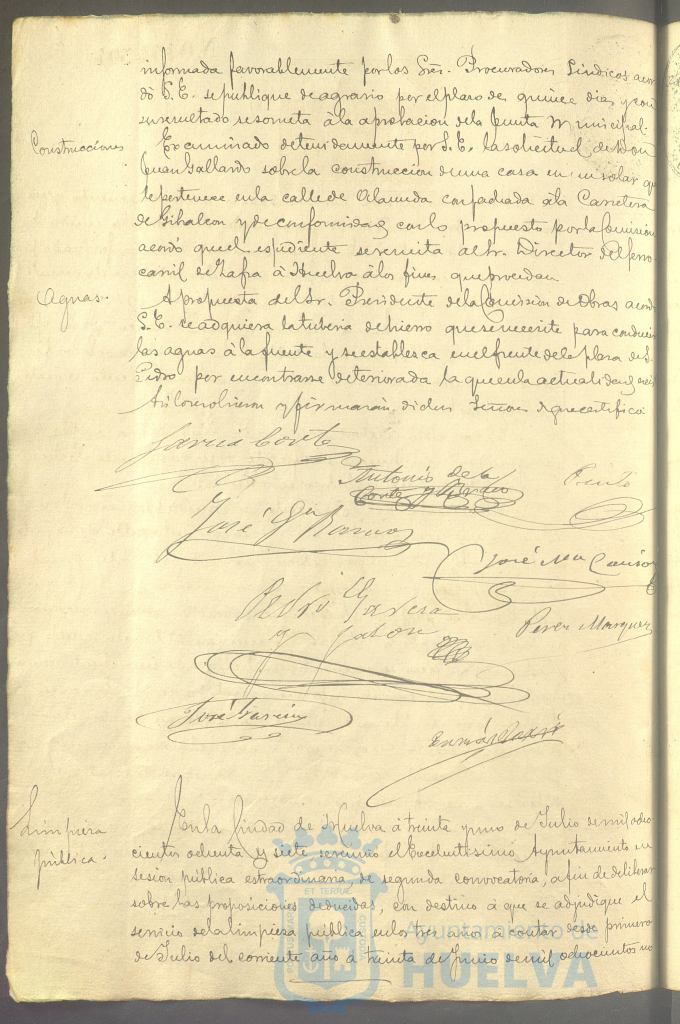 informada favorablemente por los Sres. Procuradores Sindicos acor-
dó S.E. se publique de agrario por el plazo de quince dias y con
su resultado se someta á la aprobacion de la Junta Municipal.
Construcciones
Examinado detenidamente por S.E. la solicitud de Don
Juan Gallardo sobre la construccion de una casa en un solar qe
le pertenece en la calle de con fachada á la Carretera
de Gibraleon y de conformidad con lo propuesto por la Comision
acordó que el espediente se remita al Sr. Director del ferro
carril de Zafra á Huelva á los fines que procedan.
Aguas.
A propuesta del Sr. Presidente de la Comision de Obras acordó
S.E. se adquiera la tuberia de hierro que se necesite para conducir
las aguas á la fuente y se establesca en el frente de la plaza de S.
Pedro por encontrarse deteriorada la que en la actualidad
Asi lo resolvieron y firmarán dichos Señores de que certifico
Garcia Corte
Antonio de la
Corte y
José Gn
José Ma
Pedro Garcia
y Jalon
Perez Marquez
José Garcia
Limpieza
pública.
En la Ciudad de Huelva á treinta y uno de Julio de mil ocho
cientos ochenta y siete se reunió el Excelentisimo Ayuntamiento en
sesion pública extraordinaria, de segunda convocatoria, a fin de deliberar
sobre las proposiciones deducidas, con destino á que se adjudique el
servicio de la limpieza pública en los tres años á contar desde primero
de Julio del corriente año á treinta de Junio de mil ochocientos no
Ayuntamiento de
HUELVA